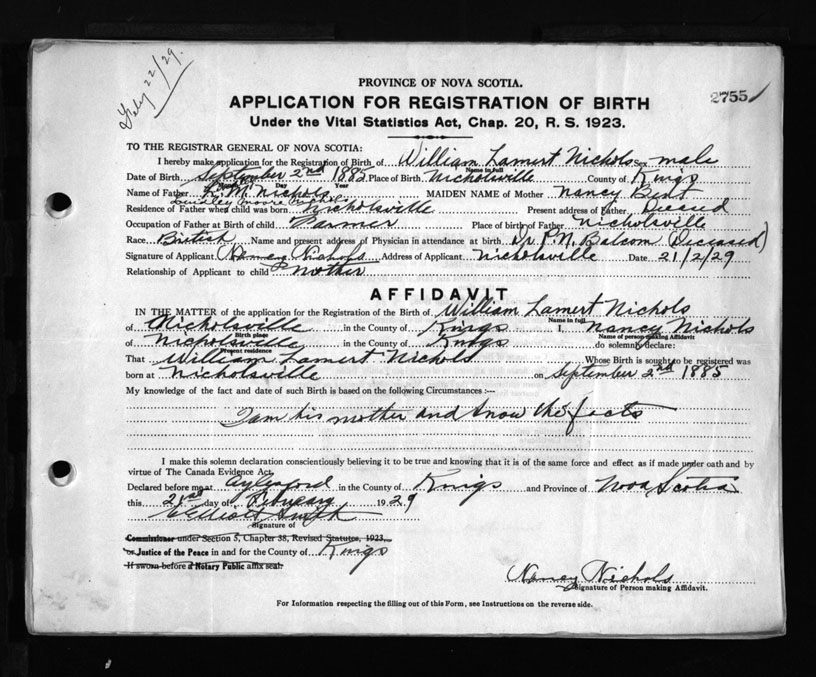 Feby 22/29.
PROVINCE OF NOVA SCOTIA.
2755
APPLICATION FOR REGISTRATION OF BIRTH
Under the Vital Statistics Act, Chap. 20, R. S. 1923.
TO THE REGISTRAR GENERAL OF NOVA SCOTIA:
I hereby make application for the Registration of Birth of William Lamert Nichols Sex male
Name in full
Date of Birth September 2nd 1885 Place of Birth Nicholsville County of Kings
Month Day Year
Name of Father L. M. Nichols MAIDEN NAME of Mother Nancy Best
Lindley Moore Nichols
Residence of Father when child was born Nicholsville Present address of Father Deceased
Occupation of Father at Birth of child Farmer Place of birth of Father Nicholsville
Race British Name and present address of Physician in attendance at birth Dr P. N. Balcom (Deceased)
Signature of Applicant Nancy Nichols Address of Applicant Nicholsville Date 21/2/29
Relationship of Applicant to child mother
AFFIDAVIT
IN THE MATTER of the application for the Registration of the Birth of William Lamert Nichols
Name in full
of Nicholsville in the County of Kings I, Nancy Nichols
Birth place Name of person making Affidavit
of Nicholsville in the County of Kings do solemnly declare:
Present residence
That William Lamert Nichols Whose Birth is sought to be registered was
born at Nicholsville on September 2nd 1885
My knowledge of the fact and date of such Birth is based on the following Circumstances :—
I am his mother and know the facts
I make this solemn declaration conscientiously believing it to be true and knowing that it is of the same force and effect as if made under oath and by
virtue of The Canada Evidence Act.
Declared before me at Aylesford in the County of Kings and Province of Nova Scotia
this 21st day of February 1929
Smith
Signature of
Commissioner under Section 5, Chapter 38, Revised Statutes, 1923,
or Justice of the Peace in and for the County of Kings
If sworn before a Notary Public affix seal.
Nancy Nichols
Signature of Person making Affidavit.
For Information respecting the filling out of this Form, see Instructions on the reverse side.